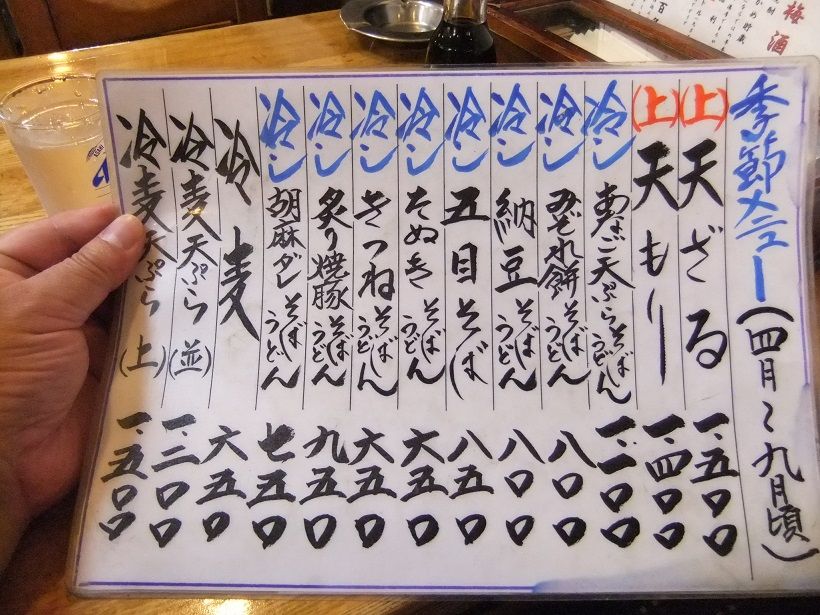 季節メニュー(四月〜九月頃)
(上)天ざる 一、五〇〇
(上)天もり 一、四〇〇
冷し あなご天ぷら そば うどん 一、一〇〇
冷し みぞれ餅 そば うどん 八〇〇
冷し 納豆 そば うどん 八〇〇
冷し 五目そば 八五〇
冷し たぬき そば うどん 六五〇
冷し きつね そば うどん 六五〇
冷し 炙り焼豚 そば うどん 九五〇
冷し 胡麻ダレ そば うどん 七五〇
冷麦 六五〇
冷麦天ぷら(並) 一、二〇〇
冷麦天ぷら(上) 一、五〇〇
梅酒